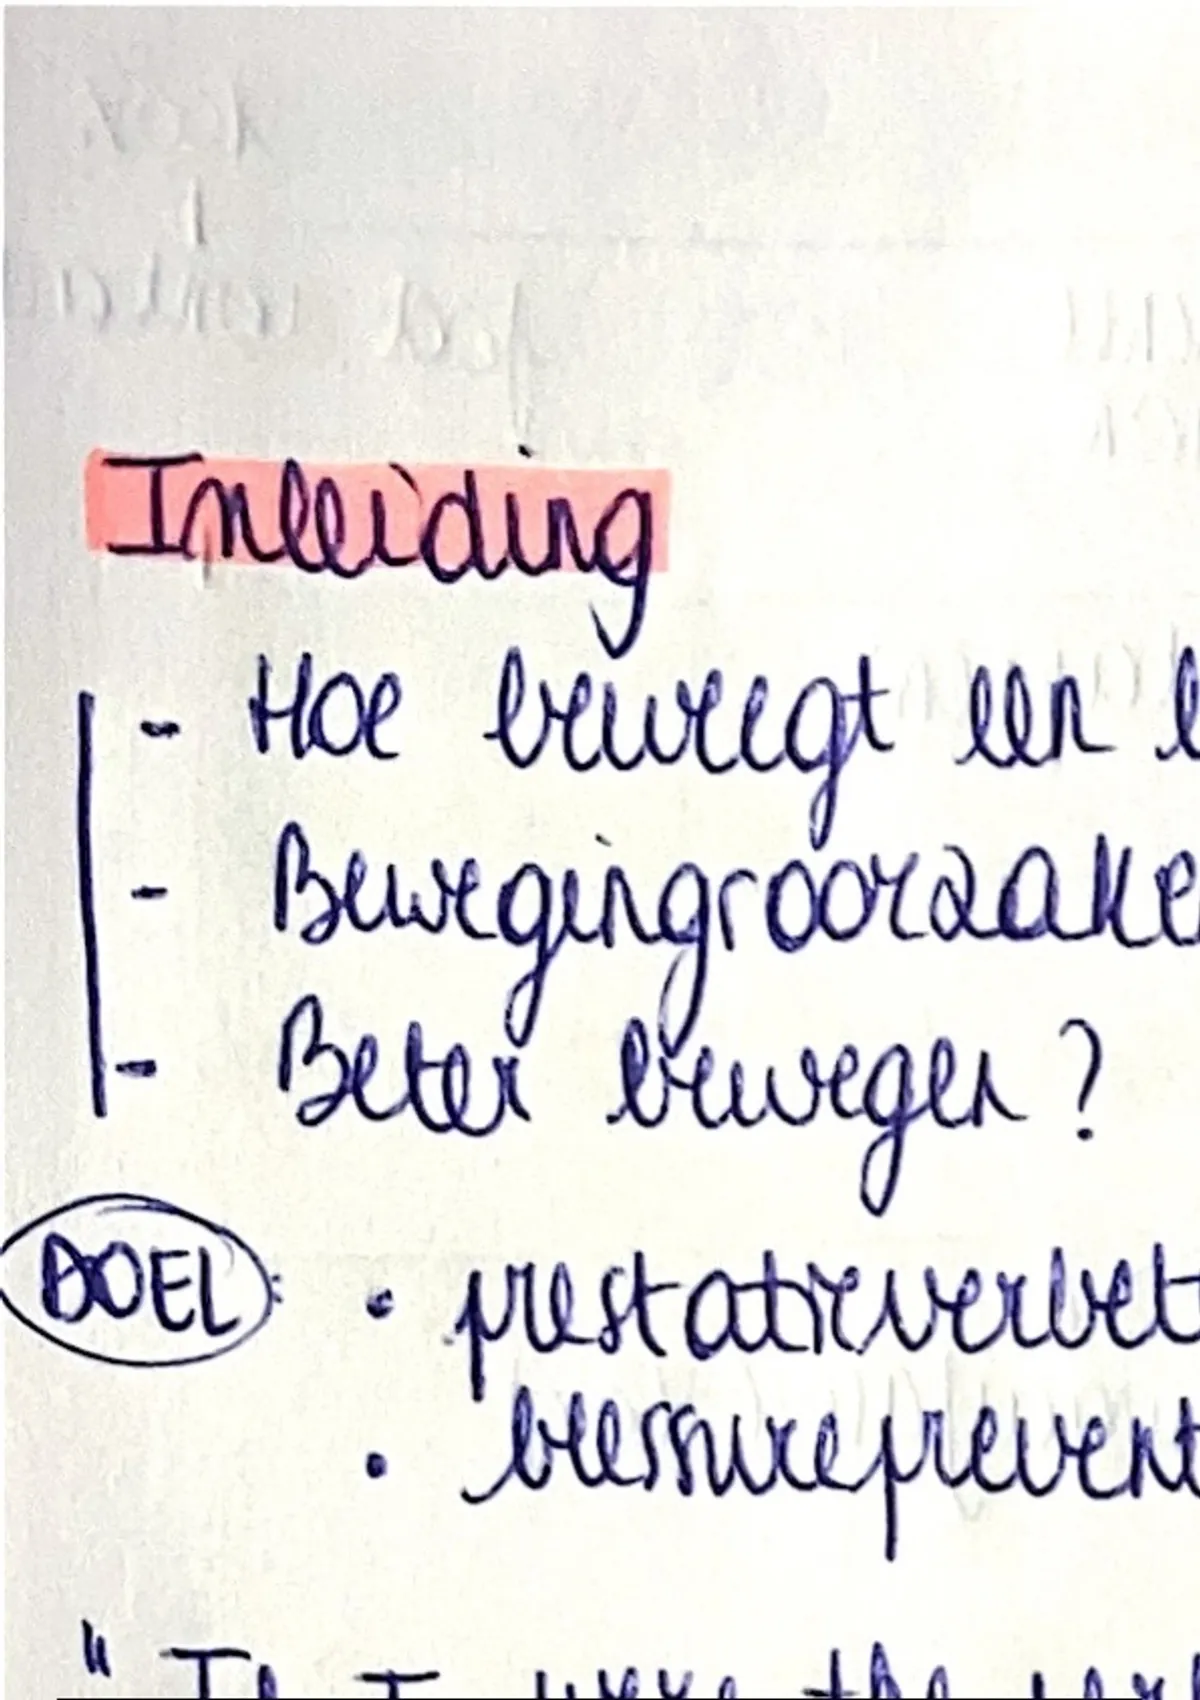 Inleiding
- Hoe beweegt een
- Bewegingsoorzake
- Beter bewegen?
DOEL: • prestatieverbet
• blessureprevent
" If I were the